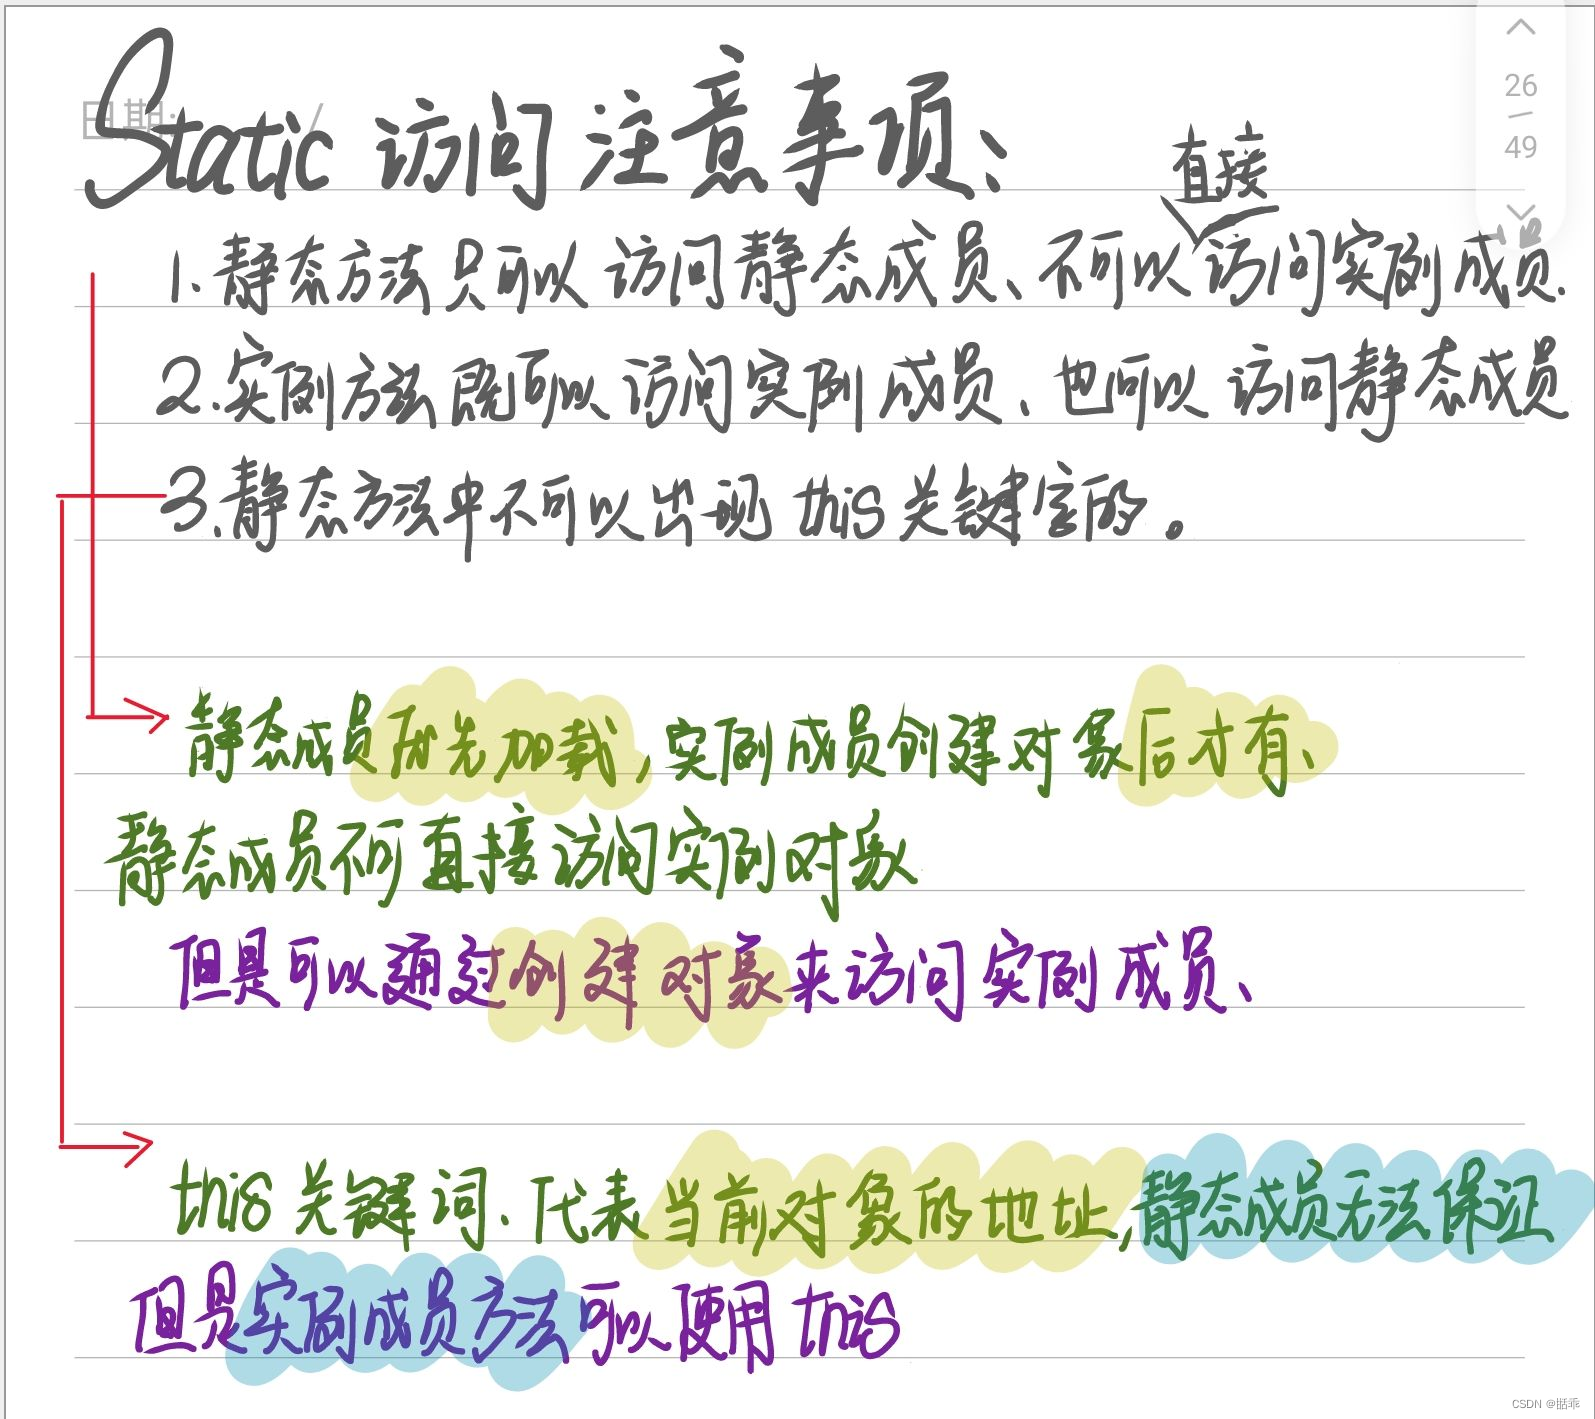 日期: /
26
49
Static 访问注意事项:
直接
1.静态方法只可以访问静态成员、不可以访问实例成员.
2.实例方法既可以访问实例成员、也可以访问静态成员
3.静态方法中不可以出现this关键字的。
静态成员优先加载,实例成员创建对象后才有、
静态成员不可直接访问实例对象
但是可以通过创建对象来访问实例成员、
this关键词、代表当前对象的地址,静态成员无法保证
但是实例成员方法可以使用this
CSDN @甛乖